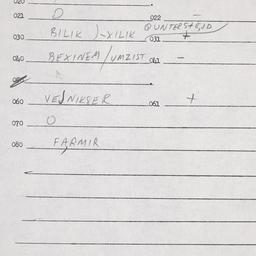 020
021 O 022 –
QUNTERSTEJD
030 BILIK )-XILIK 031 +
040 BEXINEM / UMZIST 041 –
060 VEJNIKSER 061 +
070 O
080 FARMIR